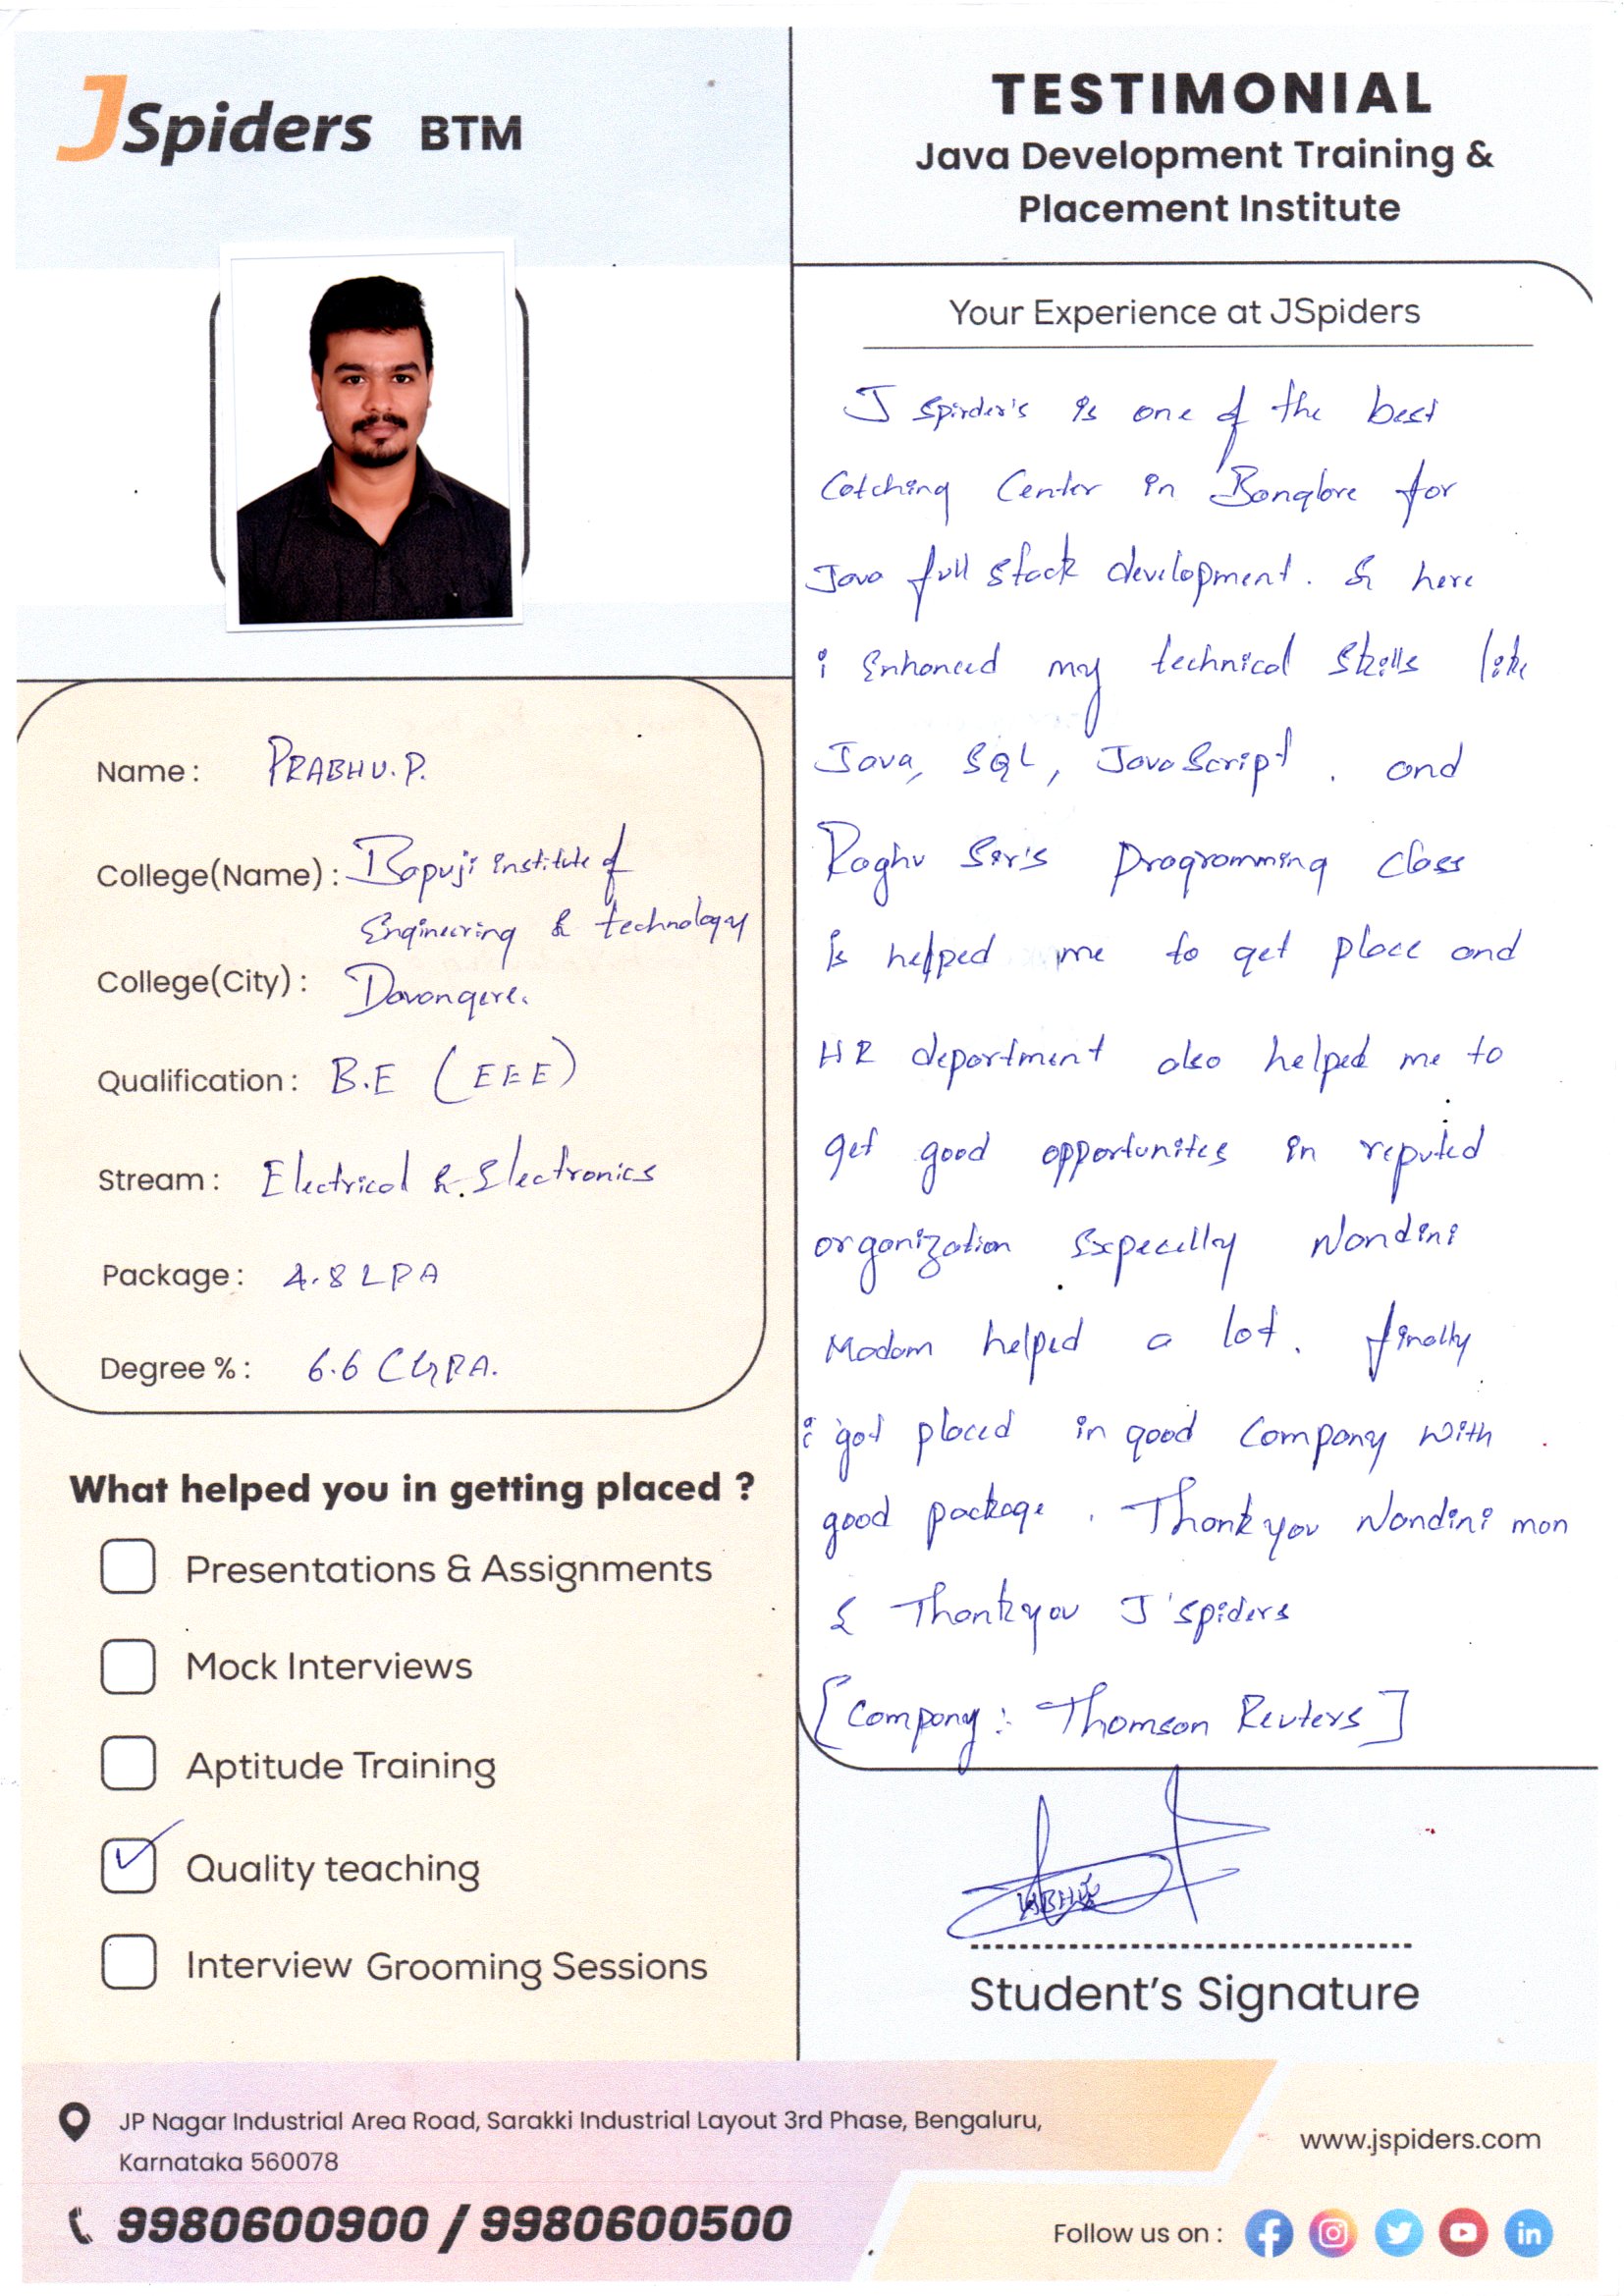 JSpiders BTM
TESTIMONIAL
Java Development Training &
Placement Institute
Name : PRABHU.P.
College(Name) : Bapuji institute of
Engineering & technology
College(City) : Davangere.
Qualification : B.E (EEE)
Stream : Electrical & Electronics
Package : 4.8 LPA
Degree % : 6.6 CGPA.
What helped you in getting placed ?
Presentations & Assignments
Mock Interviews
Aptitude Training
Quality teaching
Interview Grooming Sessions
Your Experience at JSpiders
J spirder's is one of the best
Cotching Center in Banglore for
Java full stack development. & here
i Enhanced my technical skills like
Java, SQL, JavaScript. and
Raghu Sir's programming class
is helped me to get place and
HR department also helped me to
get good opportunites in reputed
organization Expecelly Nandini
Madam helped a lot. finally
i got placed in good company with
good package. Thank you Nandini mam
& Thank you J'spiders
[Company : Thomson Reuters]
Student's Signature
JP Nagar Industrial Area Road, Sarakki Industrial Layout 3rd Phase, Bengaluru,
Karnataka 560078
9980600900 / 9980600500
www.jspiders.com
Follow us on :